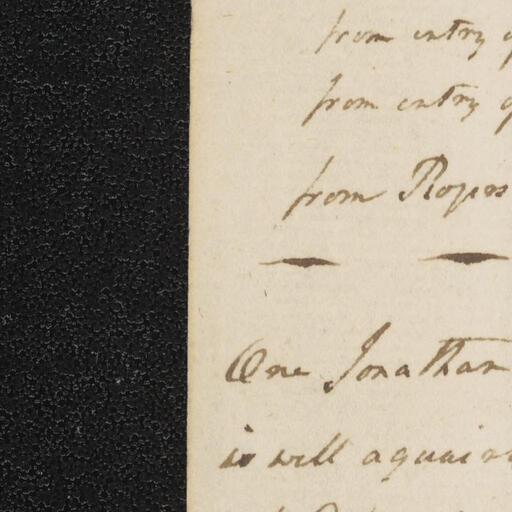 from entry
from entry
from Ropes
One Jonathan
is well aquain